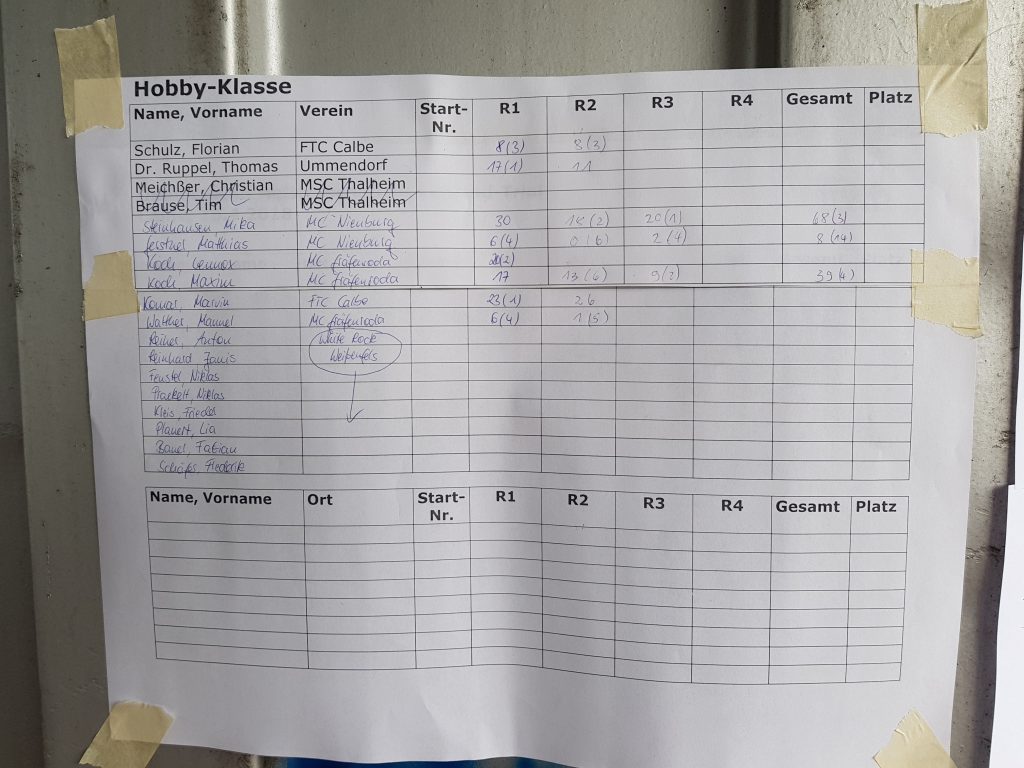 Hobby-Klasse
Name, Vorname Verein Start-Nr. R1 R2 R3 R4 Gesamt Platz
Schulz, Florian FTC Calbe 8(3) 8(3)
Dr. Ruppel, Thomas Ummendorf 17(1) 11
Meichßer, Christian MSC Thalheim
Brause, Tim MSC Thalheim
Steinhausen Mika MC Nienburg 30 18(2) 20(1) 68(3)
Matthias MC Nienburg 6(4) 0(6) 2(4) 8(14)
Koch, Lennox MC Gräfenroda
Koch, Maxim MC Gräfenroda 17 13(6) 9(3) 39(4)
Marvin FTC Calbe 23(1) 26
Walther, Manuel MC Gräfenroda 6(4) 1(5)
Anton White Rock
Reinhard Janis Weißenfels
Feustel Niklas
Niklas
Kleis, Friedel
Planert, Lia
Fabian
Frederik
Name, Vorname Ort Start-Nr. R1 R2 R3 R4 Gesamt Platz